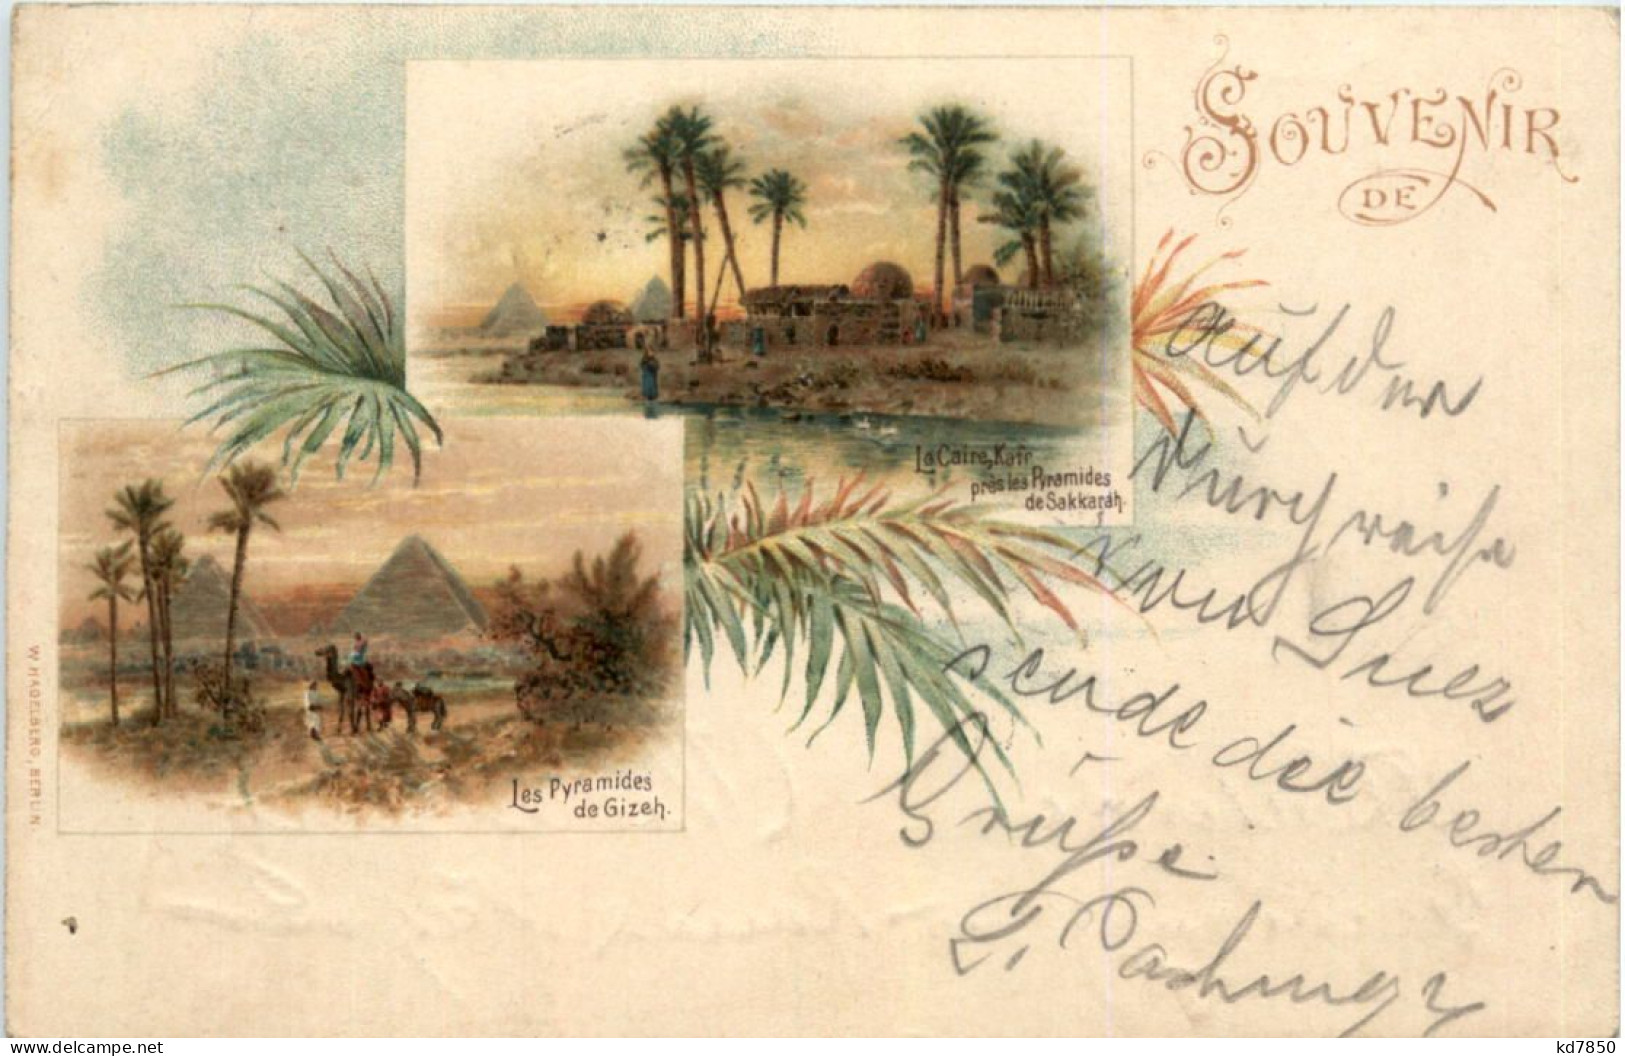 SOUVENIR
DE
La Caire, Kafr
près les Pyramides
de Sakkarah.
Les Pyramides
de Gizeh.
W. HAGELBERG, BERLIN.
Auf der
Durchreise
von Suez
sende die besten
Grüße
delcampe.net
kd7850